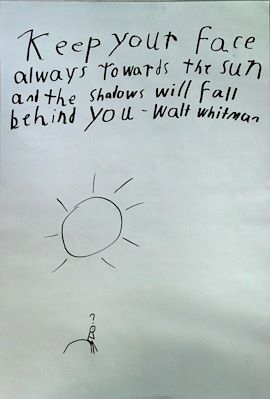 Keep your face
always towards the sun
and the shadows will fall
behind you - Walt Whitman